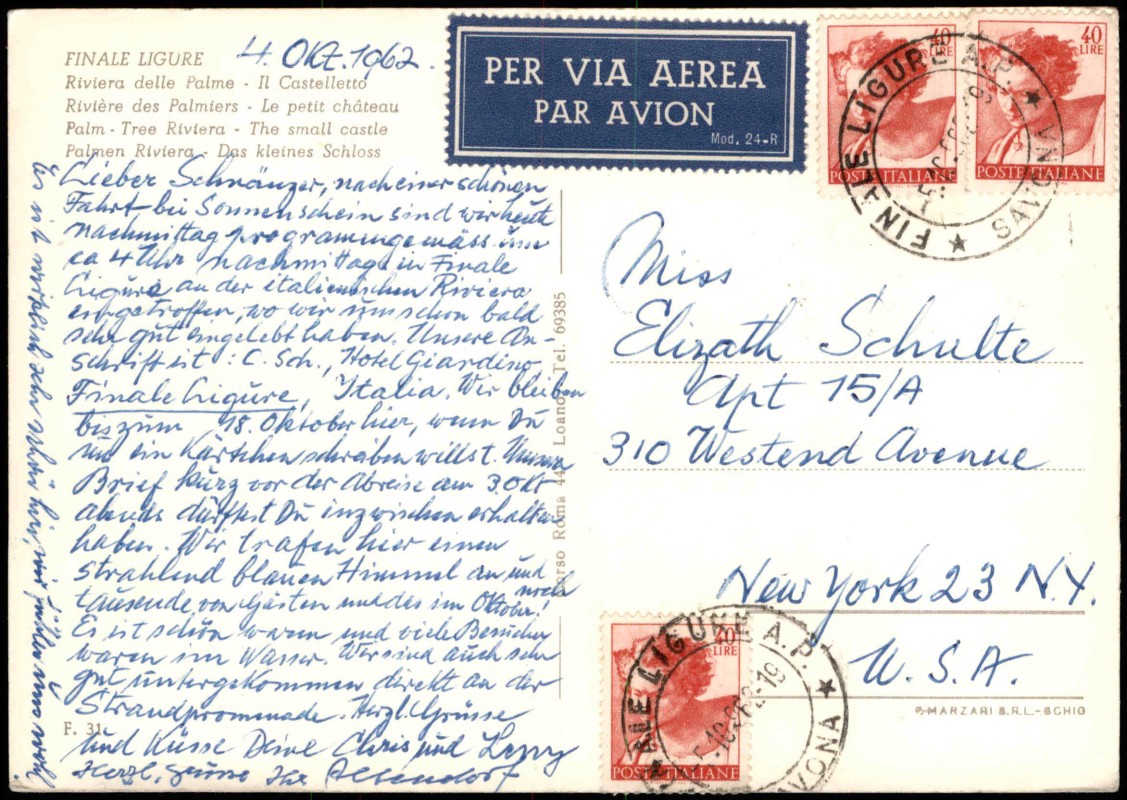 FINALE LIGURE
4. Okt. 1962.
Riviera delle Palme - Il Castelletto
Rivière des Palmiers - Le petit château
Palm - Tree Riviera - The small castle
Palmen Riviera - Das kleines Schloss
Lieber Schnänzer, nach einer schönen
Fahrt bei Sonnenschein sind wir heute
nachmittag programmgemäss um
ca 4 Uhr nachmittags in Finale
Ligure an der italienischen Riviera
eingetroffen, wo wir uns schon bald
sehr gut eingelebt haben. Unsere An-
schrift ist: C. Sch., Hotel Giardino
Finale Ligure, Italia. Wir bleiben
bis zum 18. Oktober hier, wenn Du
uns ein Kärtchen schreiben willst. Unsern
Brief kurz vor der Abreise am 3. Okt
abends dürftest Du inzwischen erhalten
haben. Wir trafen hier einen
strahlend blauen Himmel an und
tausende von Gästen und das im Oktober!
Es ist schön warm und viele Besucher
waren im Wasser. Wir sind auch sehr
gut untergekommen, direkt an der
Strandpromenade. Herzl. Grüsse
und Küsse Deine Chris und
Herzl. Grüsse Ihr
Es ist wirklich sehr schön hier, wir fühlen uns wohl
F. 31
Corso Roma 44 Loano Tel. 69385
PER VIA AEREA
PAR AVION
Mod. 24-R
40
LIRE
POSTE ITALIANE
40
LIRE
POSTE ITALIANE
FINALE LIGURE A.P. ★ SAVONA ★
Miss
Elizath Schulte
Apt 15/A
310 Westend Avenue
New York 23 N.Y.
U.S.A.
40
LIRE
POSTE ITALIANE
FINALE LIGURE A.P. ★ SAVONA ★
MARZARI S.R.L.-SCHIO